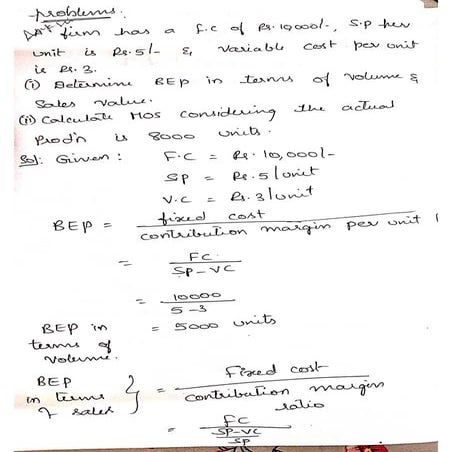 problems:
A firm has a F.C of Rs. 10,000/-, S.P per
unit is Rs. 5/- & variable cost per unit
is Rs. 3.
(i) Determine BEP in terms of volume &
Sales value.
(ii) Calculate MOS considering the actual
Prodn is 8000 units.
Sol: Given: F.C = Rs. 10,000/-
SP = Rs. 5/unit
V.C = Rs. 3/unit
BEP = fixed cost / contribution margin per unit
= FC / SP-VC
= 10000 / 5-3
BEP in terms of volume. = 5000 units
BEP in terms of sales } = Fixed cost / contribution margin ratio
= FC / SP-VC / SP